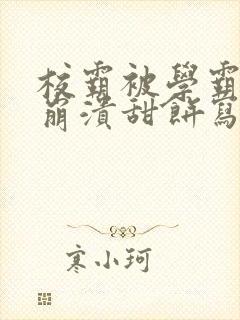 校霸被學霸
崩潰甜餅寫
寒小珂